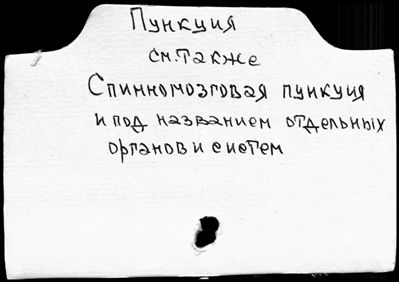 Пункция
см. также
Спинномозговая пункция
и под названием отдельных
органов и систем